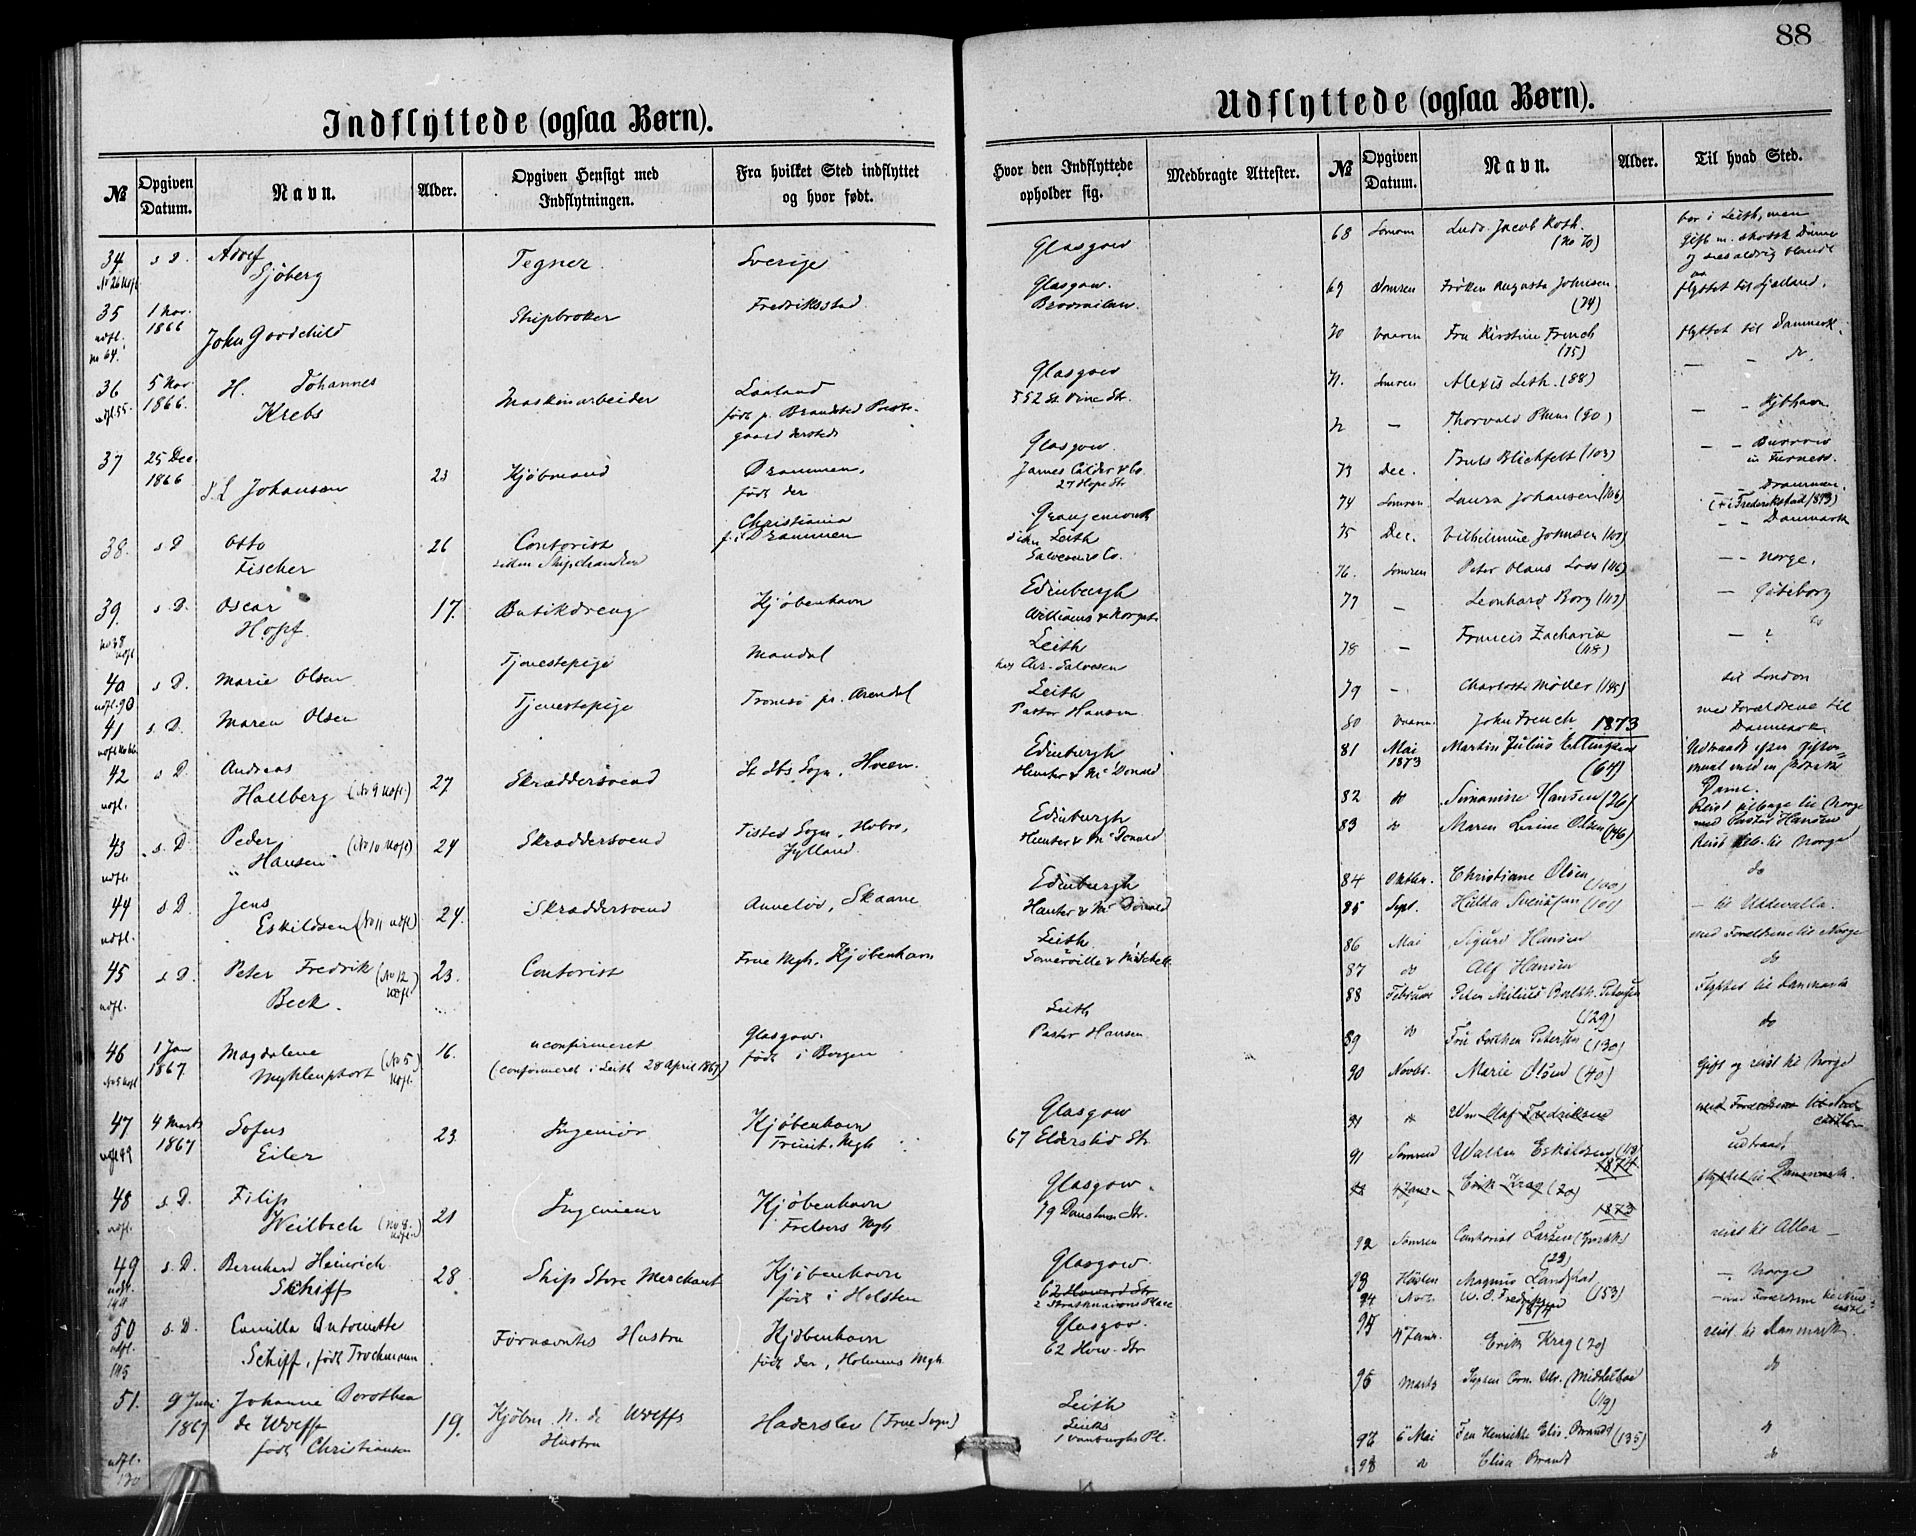 88
Indflyttede (ogsaa Børn).
№
Opgiven Datum.
Navn.
Alder.
Opgiven Hensigt med Indflytningen.
Fra hvilket Sted indflyttet og hvor født.
Hvor den Indflyttede opholder sig.
Medbragte Attester.
34 s D. Sjöberg Tegner. Sverige Glasgow
35 1 Nov. 1866 John Goodchild Skipbroker Fredriksstad Glasgow.
36 5 Nov 1866. H. Johannes Krebs Maskinarbeider Laaland Glasgow
født p. Brandsted Præste-
gaard dersteds
552 St. Vine Str.
37 25 Dec 1866 Johansen 23 Kjøbmand Drammen, Glasgow.
født der
James Calder & Co.
27 Hope Str
38. s D Otto Fischer 26 Contorist Christiania
siden Skipshandler f. i Drammen
Leith
Salvesen & Co.
39 s D. Oscar Hopf. 17. Butikdreng Kjøbenhavn Edinburgh
40 s D. Marie Olsen Tjenestepige Mandal Leith
hos Chr. Salvesen
udfl. 90
41 s. D. Maren Olsen Tjenestepige Tromsø pr. Arendal Leith
Pastor Hansen
42 s D. Andreas Hallberg (No 9 Udfl.) 27 Skræddersvend St. Ibs Sogn, Hveen. Edinburgh
udfl. Hunter & Mc Donald
43 s D. Peder Hansen (No 10 Udfl) 24 Skræddersvend Tisted Sogn, Hobro, Jylland. Edinburgh
udfl. Hunter & Mc Donald
44 s D. Jens Eskildsen (No 11 udfl) 24. Skræddersvend Anneløv, Skaane Edinburgh
udfl. Hunter & Mc Donald
45 s D. Peter Fredrik Beck. (No 12 Udfl.) 23. Contorist Frue Mgh. Kjøbenhavn Leith
udfl. Somerville & Mitchell
46 1 Jan 1867 Magdalene Myklenphort (No 5 Udfl.) 16. uconfirmeret Glasgow. Leith
(confirmeret i Leith 28 April 1867) født i Bergen Pastor Hansen
47 4 Marts 1867 Sofus Eiler 23 Ingeniør Kjøbenhavn Glasgow
Trinit. Mgh 67 Elderslie Str
48 s D. Filip Weilbach (No 8. Udfl.) 21 Ingenieur Kjøbenhavn Glasgow.
udfl. Frelsers Mgh
49 s. D. Bernhard Heinrich Schiff 28 Ship Store Merchant Kjøbenhavn Glasgow.
udfl. 144 født i Holsten 62 Howard Str
50 s. D. Camilla Antoinette Fornævntes Hustru Kjøbenhavn Glasgow.
udfl. 145 Schiff, født Trockmann født der, Holmens Mgh. 62 How. Str
51. 9 Juni 1867 Johanne Dorothea de Wolff født Christiansen 19. Kjøbm. N. de Wolffs Hustru Haderslev (Frue Sogn) Leith
udfl. 130 1 Vanburgh Pl.
Udflyttede (ogsaa Børn).
№
Opgiven Datum.
Navn.
Alder.
Til hvad Sted.
68 Ludv. Jacob Roth. (No 70) bor i Leith, men
Gift m. skotsk Dame
og sees aldrig blandt
os
69 Somren Frøken Augusta Johnsen (74) flyttet til Sjælland.
70 Vaaren Fru Kirstine French (75) flyttet til Danmark.
71. Somren Alexis Lith. (88) — - do.
72 - Thorvald Plum (90) — - Kjøbhavn
73 Dec. Truls Blichfelt (103) - - Barrow in Furness.
74 Somren Laura Johansen (106) - Drammen. († i Frederikstad 1873)
75 Dec. Vilhelmine Johnsen - - Danmark
76. Somren Peter Olaus Loss (116) - - Norge.
77 - Leonhard Borg (117) - Göteborg
78 - Francis Zachariæ (118) - ?
79 - Charlotte Møller (145) til London
80 Vaaren. John French med Forældrene til Danmark.
1873
81 Mai 1873 Martin Julius Ellingsen (64)
Dame.
82 do Simonine Hansen (26) Reist tilbage til Norge
med Pastor Hansen
83 do Maren Lovine Olsen (46) Reist tilb. til Norge
84 Oktbr. Christiane Olsen (100) do
85 Sept. Hulda Svensen (101) - til Uddevalla.
86 Mai Sigurd Hansen med Foreldrene til Norge
87 do Alf Hansen do
88 Februar Peter Milius Balth. Petersen (129) Flyttet til Danmark
89 do Petersen (130) do
90 Novbr. Marie Olsen (40) Gift og reist til Norge
91 Wm Olaf Fredriksen
91 Somren Walter Eskildsen udvandr.
1874
4 Janr Erik Krag (20) flyttet til Danmark.
1873
92 Somren Contorist Larsen (29) reist til Alloa -
93 Høsten Magnus Landstad (153) - Norge
94 Nov. W. O. Fredriksen
1874
95 4 Janr. Erik Krag (20) reist til Danmark.
96 Marts Middelboe (119) do
97 6 Mai Fru Henriette Elis. Brandt (135) do
98 Elisa Brandt do